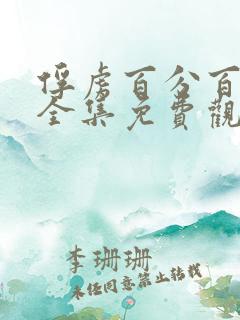 俘虏百分百
全集免費觀
李珊珊
未经同意禁止转载